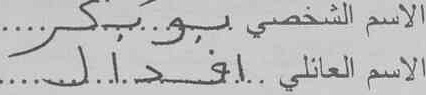 الاسم الشخصي بوبكر
الاسم العائلي افدال